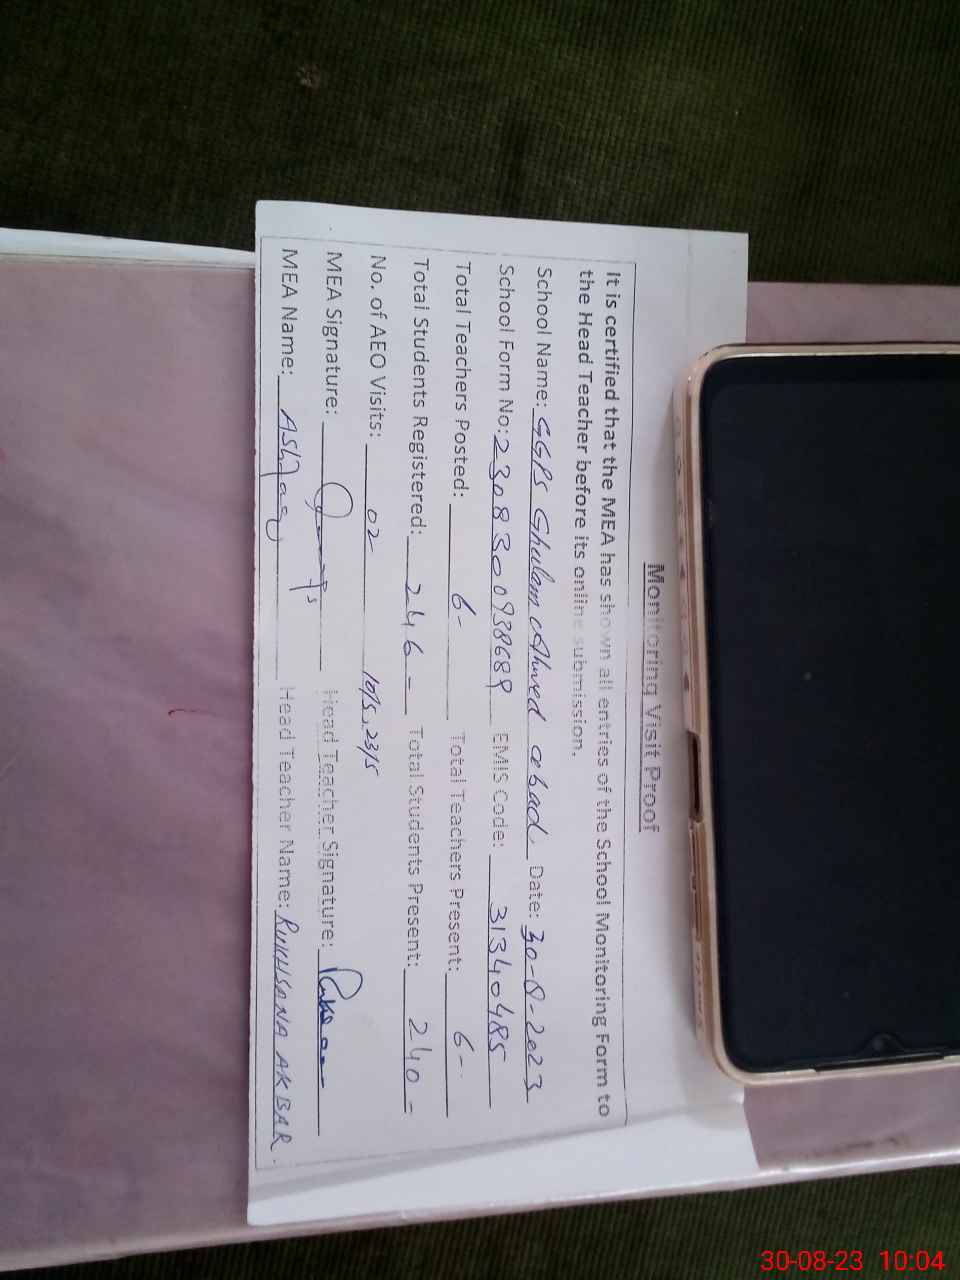 Monitoring Visit Proof
It is certified that the MEA has shown all entries of the School Monitoring Form to
the Head Teacher before its online submission.
School Name: GGPS Ghulam Ahmed abad Date: 30-8-2023
School Form No: 2308300938689 EMIS Code: 31340485
Total Teachers Posted: 6- Total Teachers Present: 6-
Total Students Registered: 246- Total Students Present: 240-
No. of AEO Visits: 02 10/5, 23/5
MEA Signature: Head Teacher Signature:
MEA Name: Ashfaq Head Teacher Name: RUKHSANA AKBAR.
30-08-23 10:04